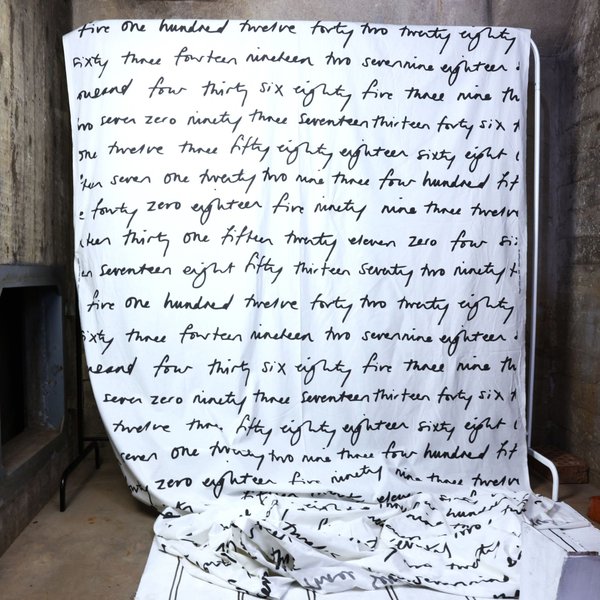 five one hundred twelve forty two twenty eighty
sixty three fourteen nineteen two seven nine eighteen
four thirty six eighty five three nine th
two seven zero ninety three seventeen thirteen forty six
one twelve three fifty eighty eighteen sixty eight
seven one twenty two nine three four hundred fif
forty zero eighteen five ninety nine three twelve
teen thirty one fifteen twenty eleven zero four si
seventeen eight fifty thirteen seventy two ninety
five one hundred twelve forty two twenty eighty
sixty three fourteen nineteen two seven nine eighteen
four thirty six eighty five three nine th
seven zero ninety three seventeen thirteen forty six
twelve three fifty eighty eighteen sixty eight
seven one twenty two nine three four hundred fif
zero eighteen five ninety nine three twelve